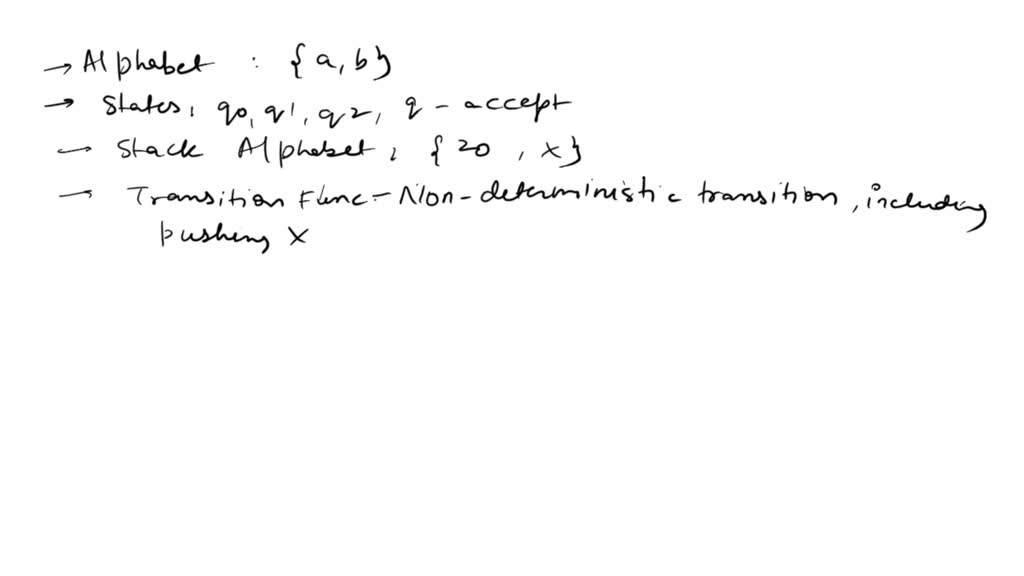 → Alphabet : {a, b}
→ States, q0, q1, q2, q - accept
→ Stack Alphabet, {z0, x}
→ Transition Func - Non-deterministic transition, including
pushing X